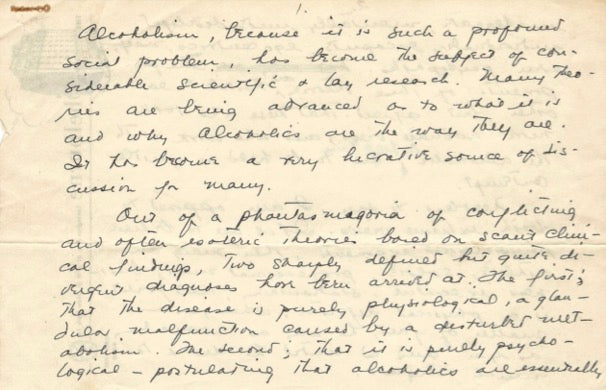 1.
Alcoholism, because it is such a profound
social problem, has become the subject of con-
siderable scientific & lay research. Many theo-
ries are being advanced as to what it is
and why Alcoholics are the way they are.
It has become a very lucrative source of dis-
cussion for many.
Out of a phantasmagoria of conflicting
and often esoteric theories based on scant clini-
cal findings, two sharply defined but quite di-
vergent diagnoses have been arrived at. The first;
that the disease is purely physiological, a glan-
dular malfunction caused by a disturbed met-
abolism. The second; that it is purely psycho-
logical - postulating that alcoholics are essentially